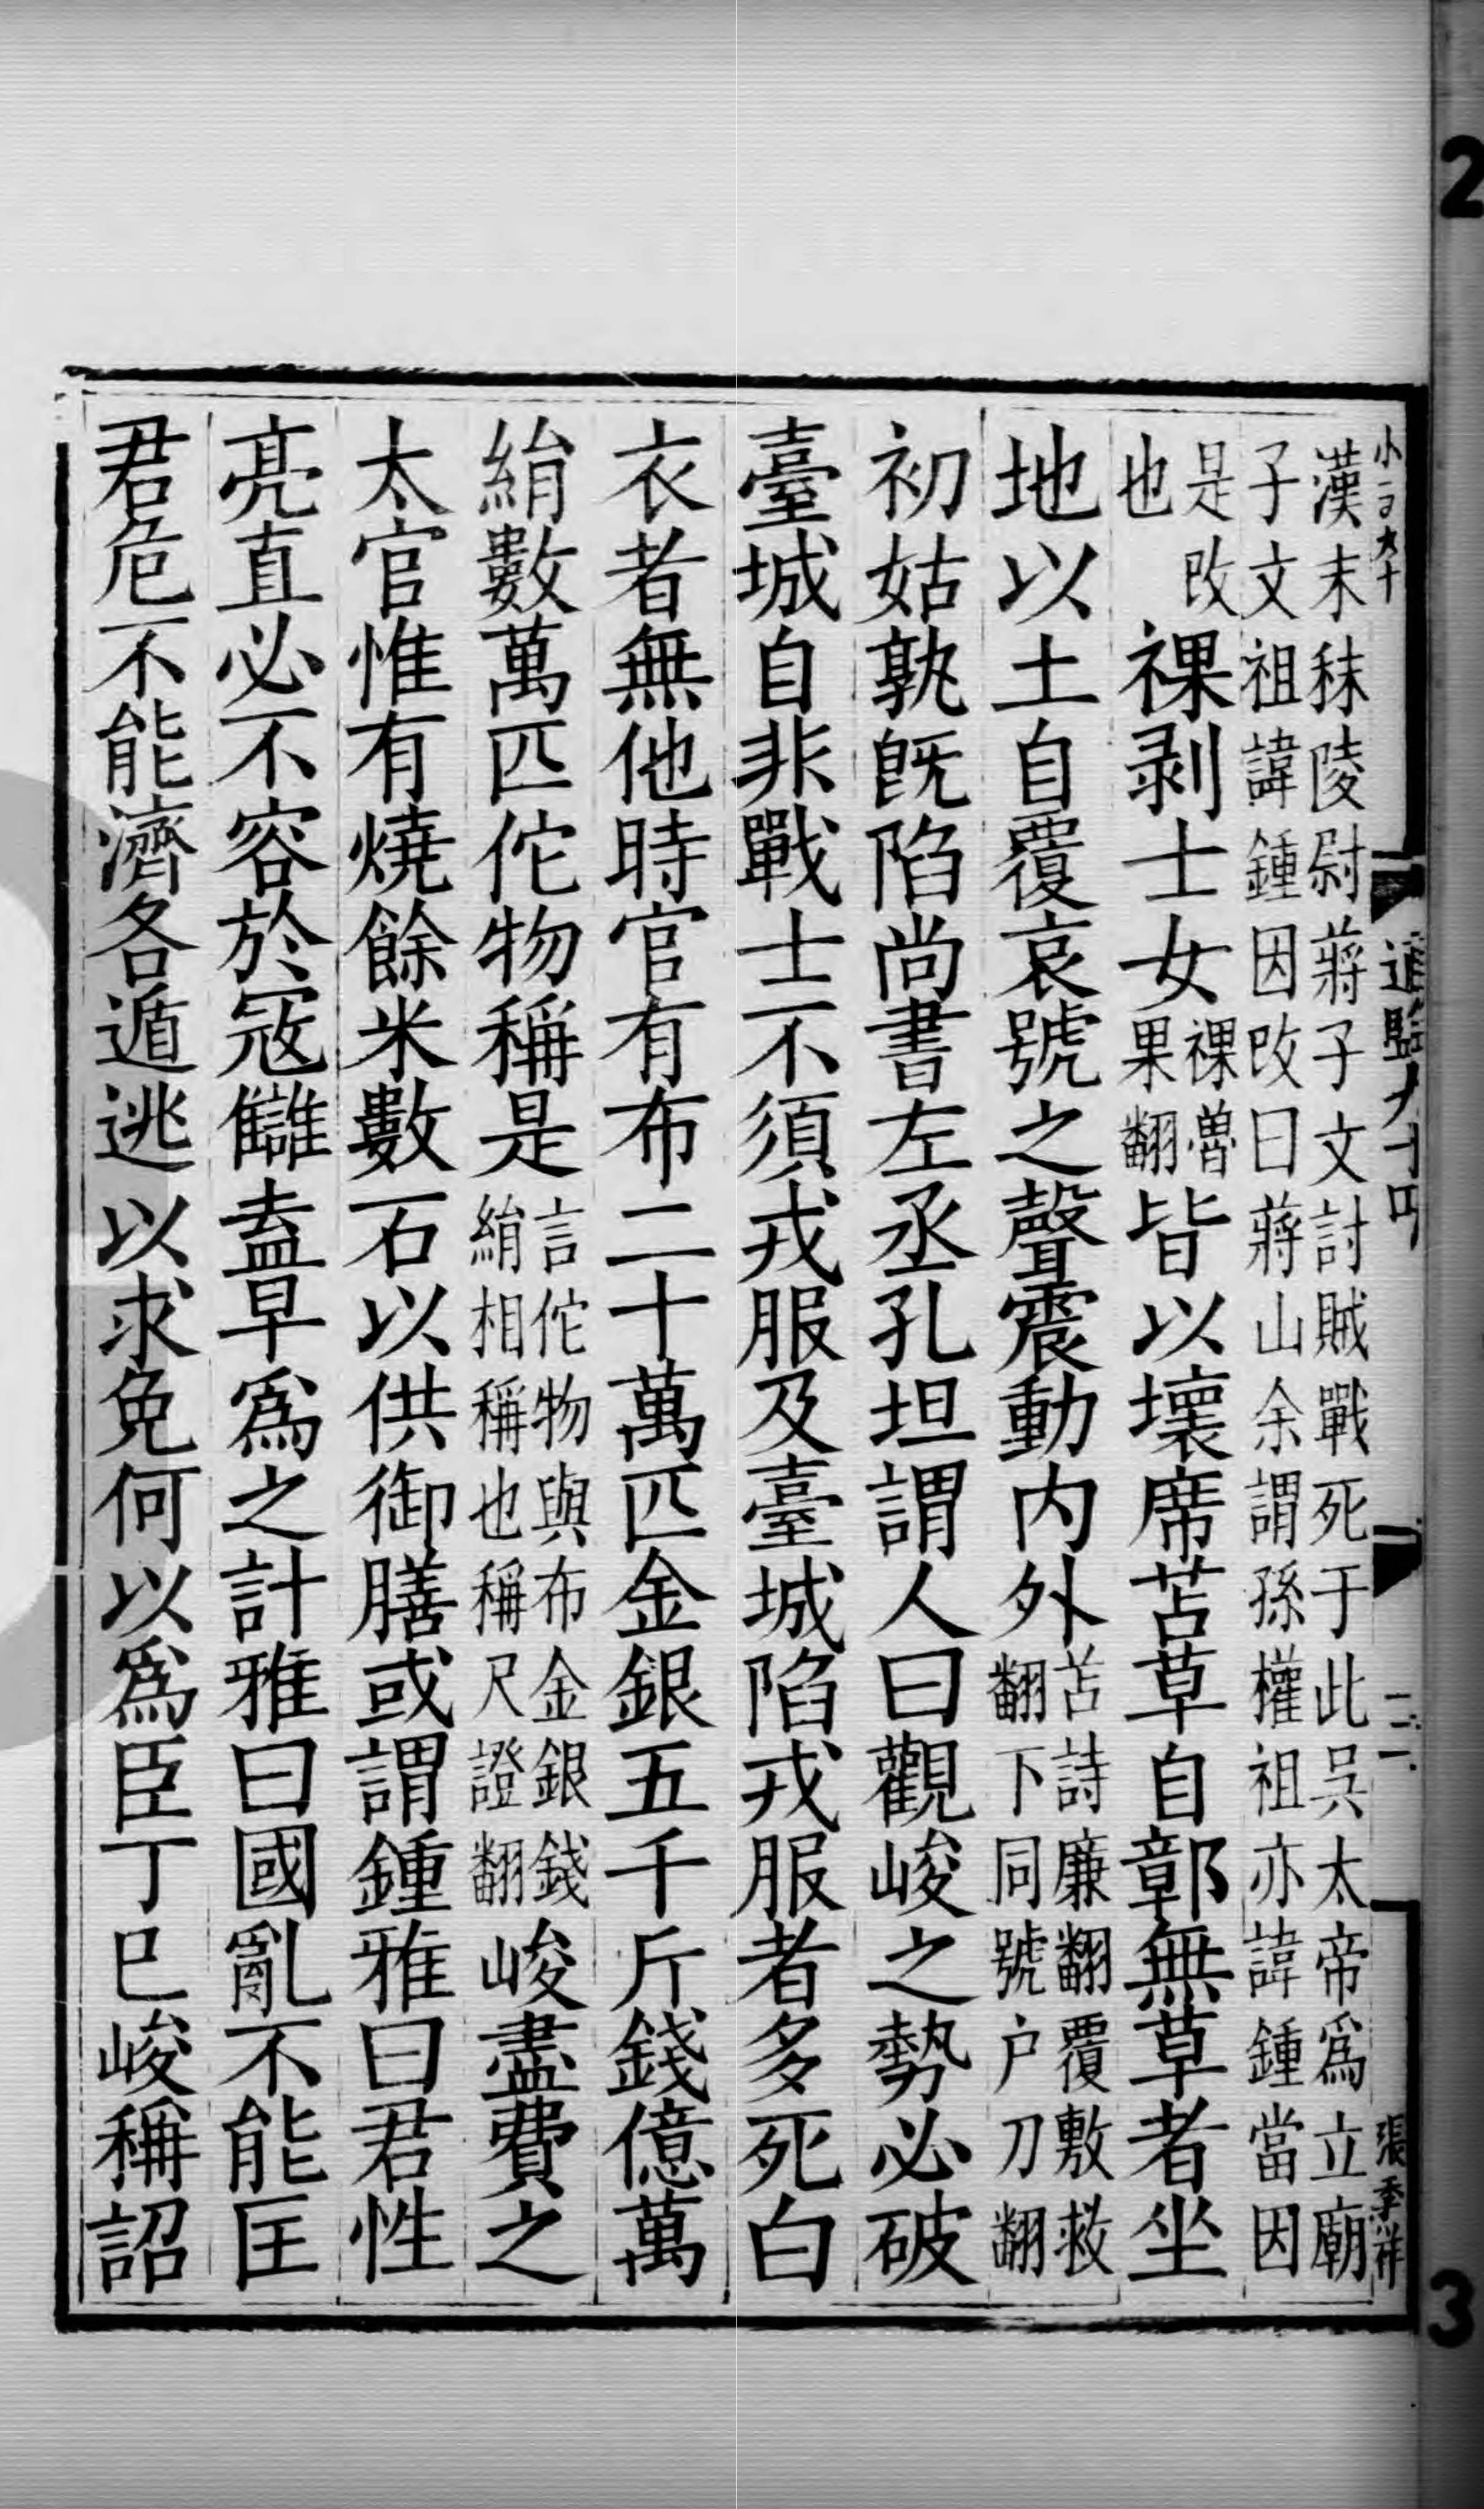 漢末秣陵尉蔣子文討賊戰死于此吳太帝爲立廟
子文祖諱鍾因改曰蔣山余謂孫權祖亦諱鍾當因
是改
也
祼剥士女
祼魯
果翻
皆以壞席苫草自鄣無草者坐
地以土自覆哀號之聲震動内外
苫詩廉翻覆敷救
翻下同號户刀翻
初姑孰既陷尚書左丞孔坦謂人曰觀峻之勢必破
臺城自非戰士不須戎服及臺城陷戎服者多死白
衣者無他時官有布二十萬匹金銀五千斤錢億萬
絹數萬匹佗物稱是
言佗物與布金銀錢
絹相稱也稱尺證翻
峻盡費之
太官惟有燒餘米數石以供御膳或謂鍾雅曰君性
亮直必不容於寇讎盍早爲之計雅曰國亂不能匡
君危不能濟各遁逃以求免何以爲臣丁巳峻稱詔
通監九十四
二
張季祥
2
3